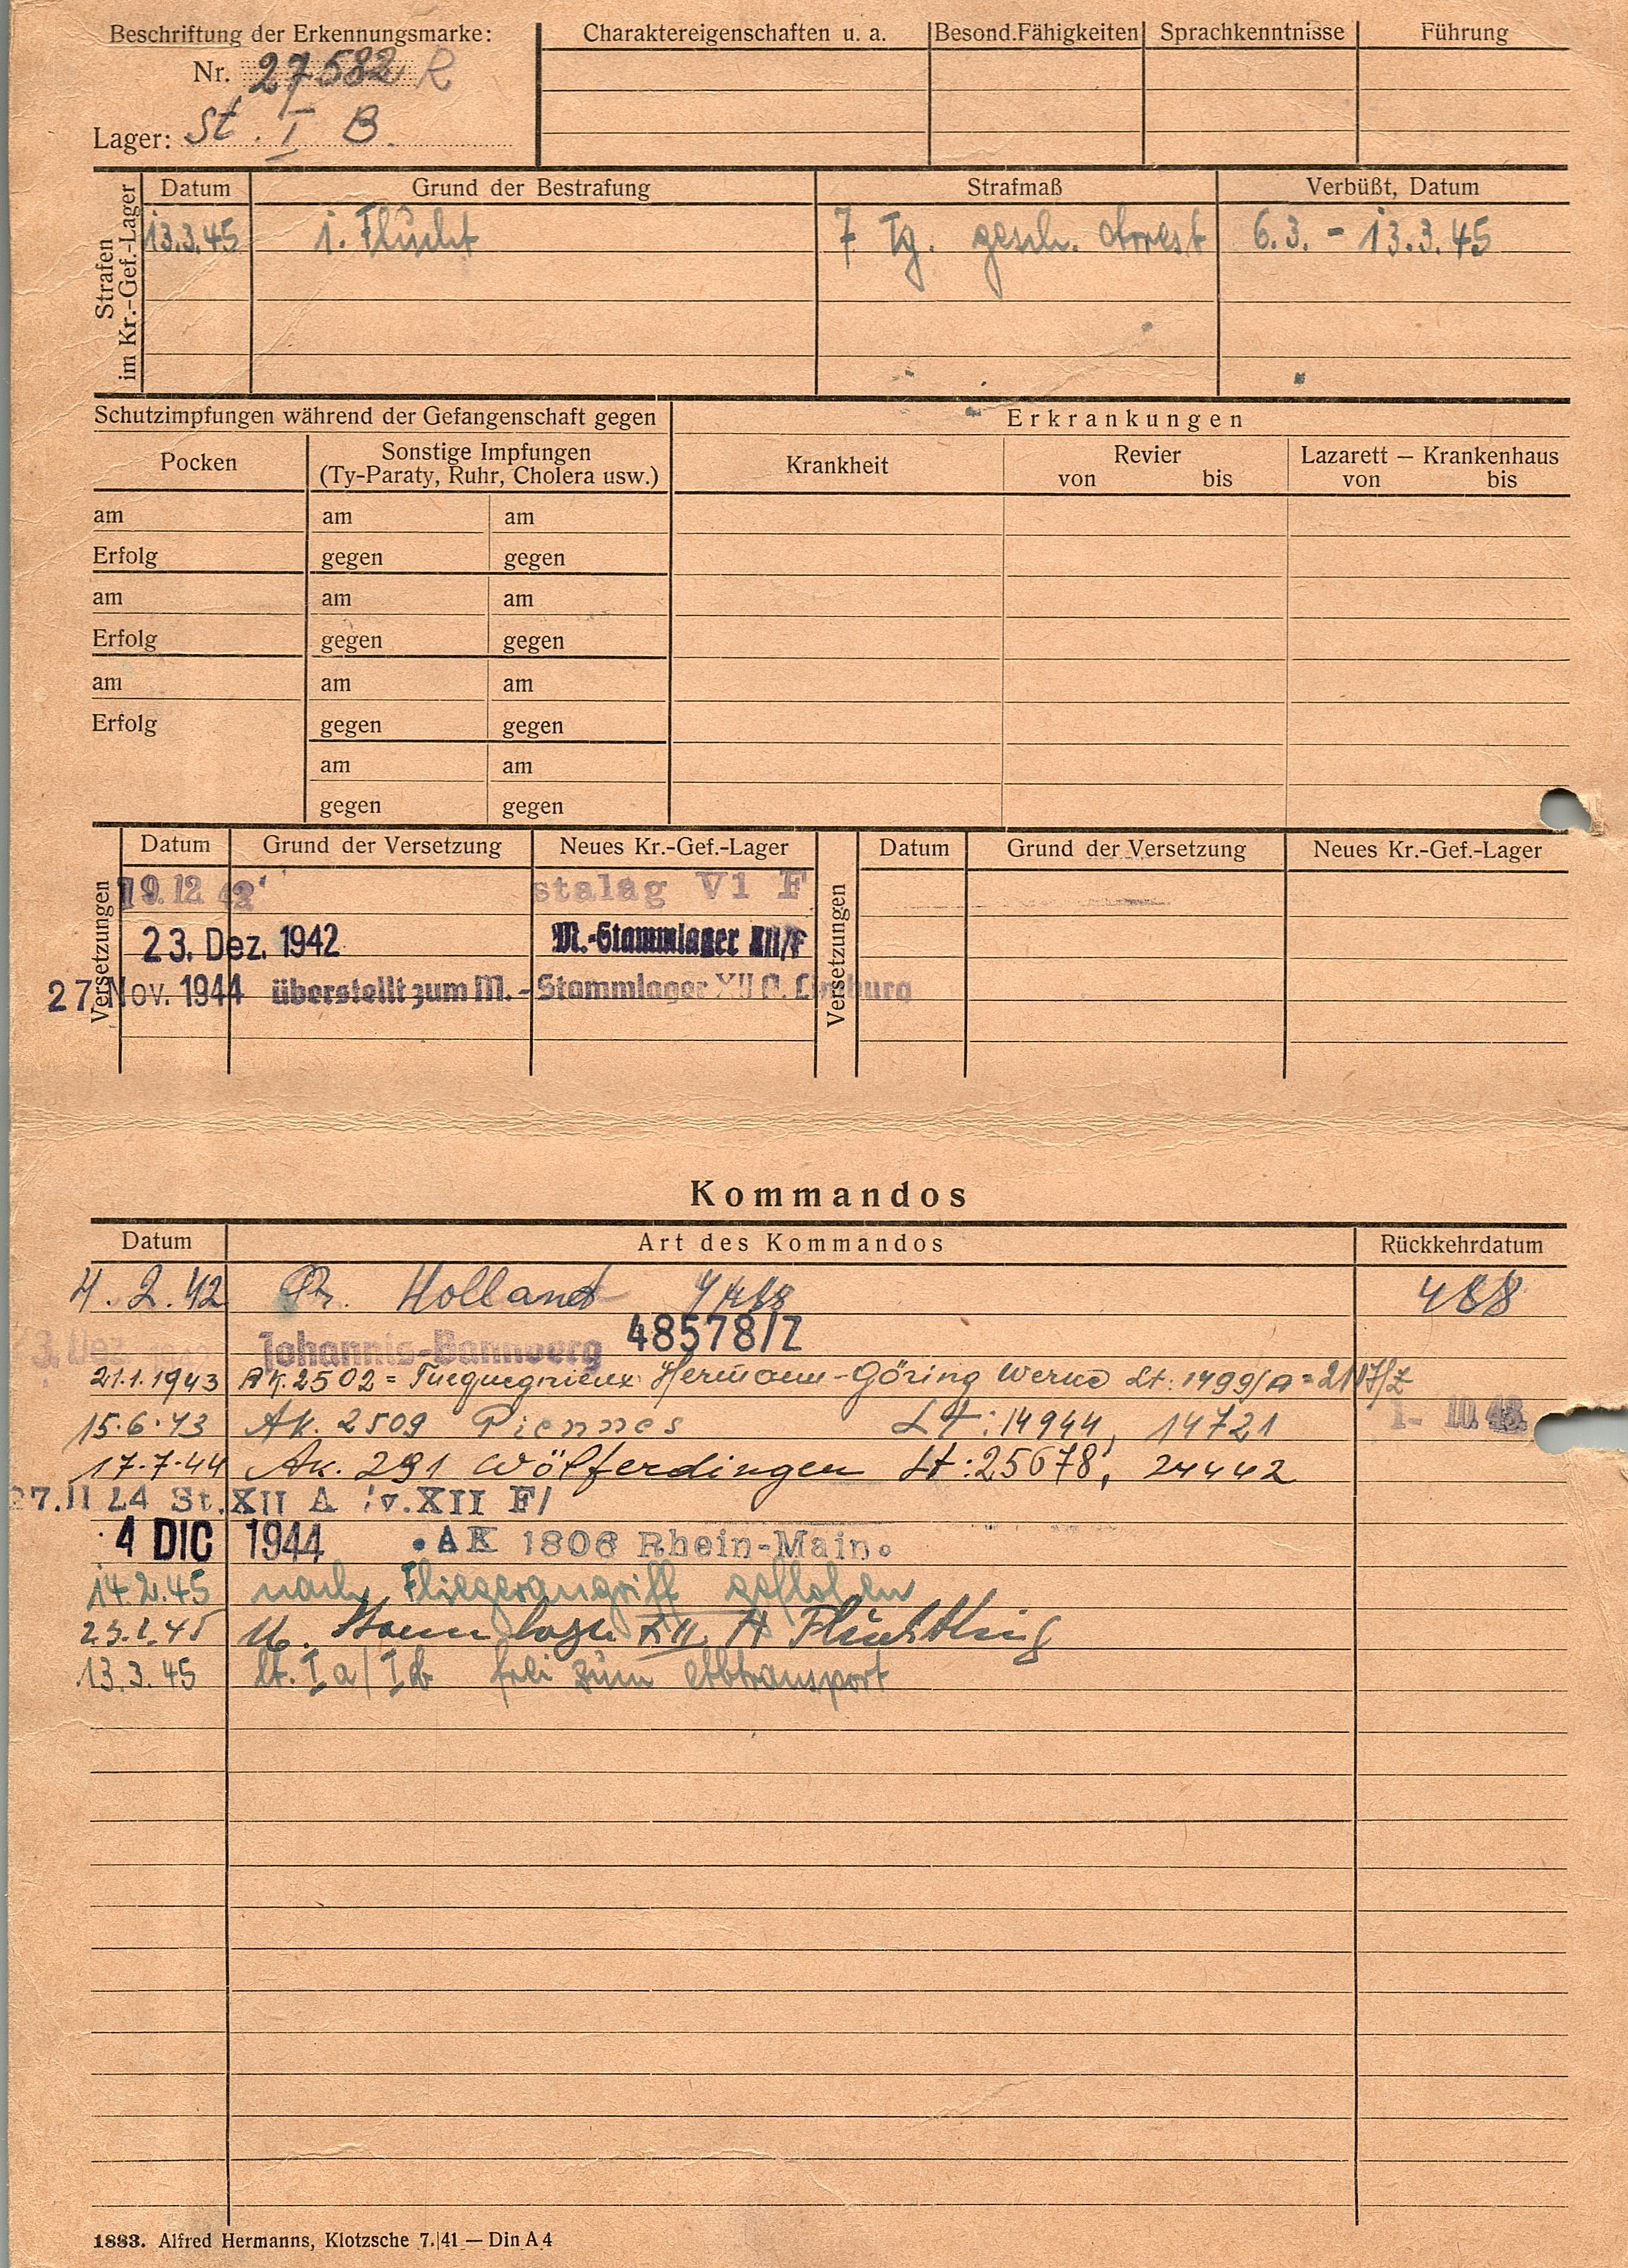 Beschriftung der Erkennungsmarke:
Nr. 27582 R
Lager: St. I B.
Charaktereigenschaften u. a.
Besond.Fähigkeiten
Sprachkenntnisse
Führung
Strafen
im Kr.-Gef.-Lager
Datum Grund der Bestrafung Strafmaß Verbüßt, Datum
13.3.45 1. Flucht 7 Tg. gesch. Arrest 6.3. - 13.3.45
Schutzimpfungen während der Gefangenschaft gegen
Pocken
Sonstige Impfungen
(Ty-Paraty, Ruhr, Cholera usw.)
am am am
Erfolg gegen gegen
am am am
Erfolg gegen gegen
am am am
Erfolg gegen gegen
am am
gegen gegen
Erkrankungen
Krankheit
Revier
von bis
Lazarett — Krankenhaus
von bis
Versetzungen
Datum Grund der Versetzung Neues Kr.-Gef.-Lager
19.12 42 stalag VI F
23. Dez. 1942 M.-Stammlager XII/F
27. Nov. 1944 überstellt zum M.-Stammlager XII A. Limburg
Versetzungen
Datum Grund der Versetzung Neues Kr.-Gef.-Lager
Kommandos
Datum Art des Kommandos Rückkehrdatum
4.2.42 Pr. Holland 488
48578/Z
23. Dez. 1942 Johannis-Bannberg
21.1.1943 AK. 2502 = Tucquegnieux Hermann-Göring Werke Lt: 1499/A = 2107/Z
15.6.43 AK. 2509 Piennes Lt: 14944, 14721
17.7.44 Ak. 291 Wölferdingen Lt: 25678, 24442
27.11 44 St. XII A /v.XII F/
4 DIC 1944 AK 1806 Rhein-Main
14.2.45 nach Fliegerangriff geflohen
23.2.45 M. Stammlager XII A Flüchtling
13.3.45 lt. Ia/Ib frei zum Abtransport
1883. Alfred Hermanns, Klotzsche 7.|41 — Din A 4